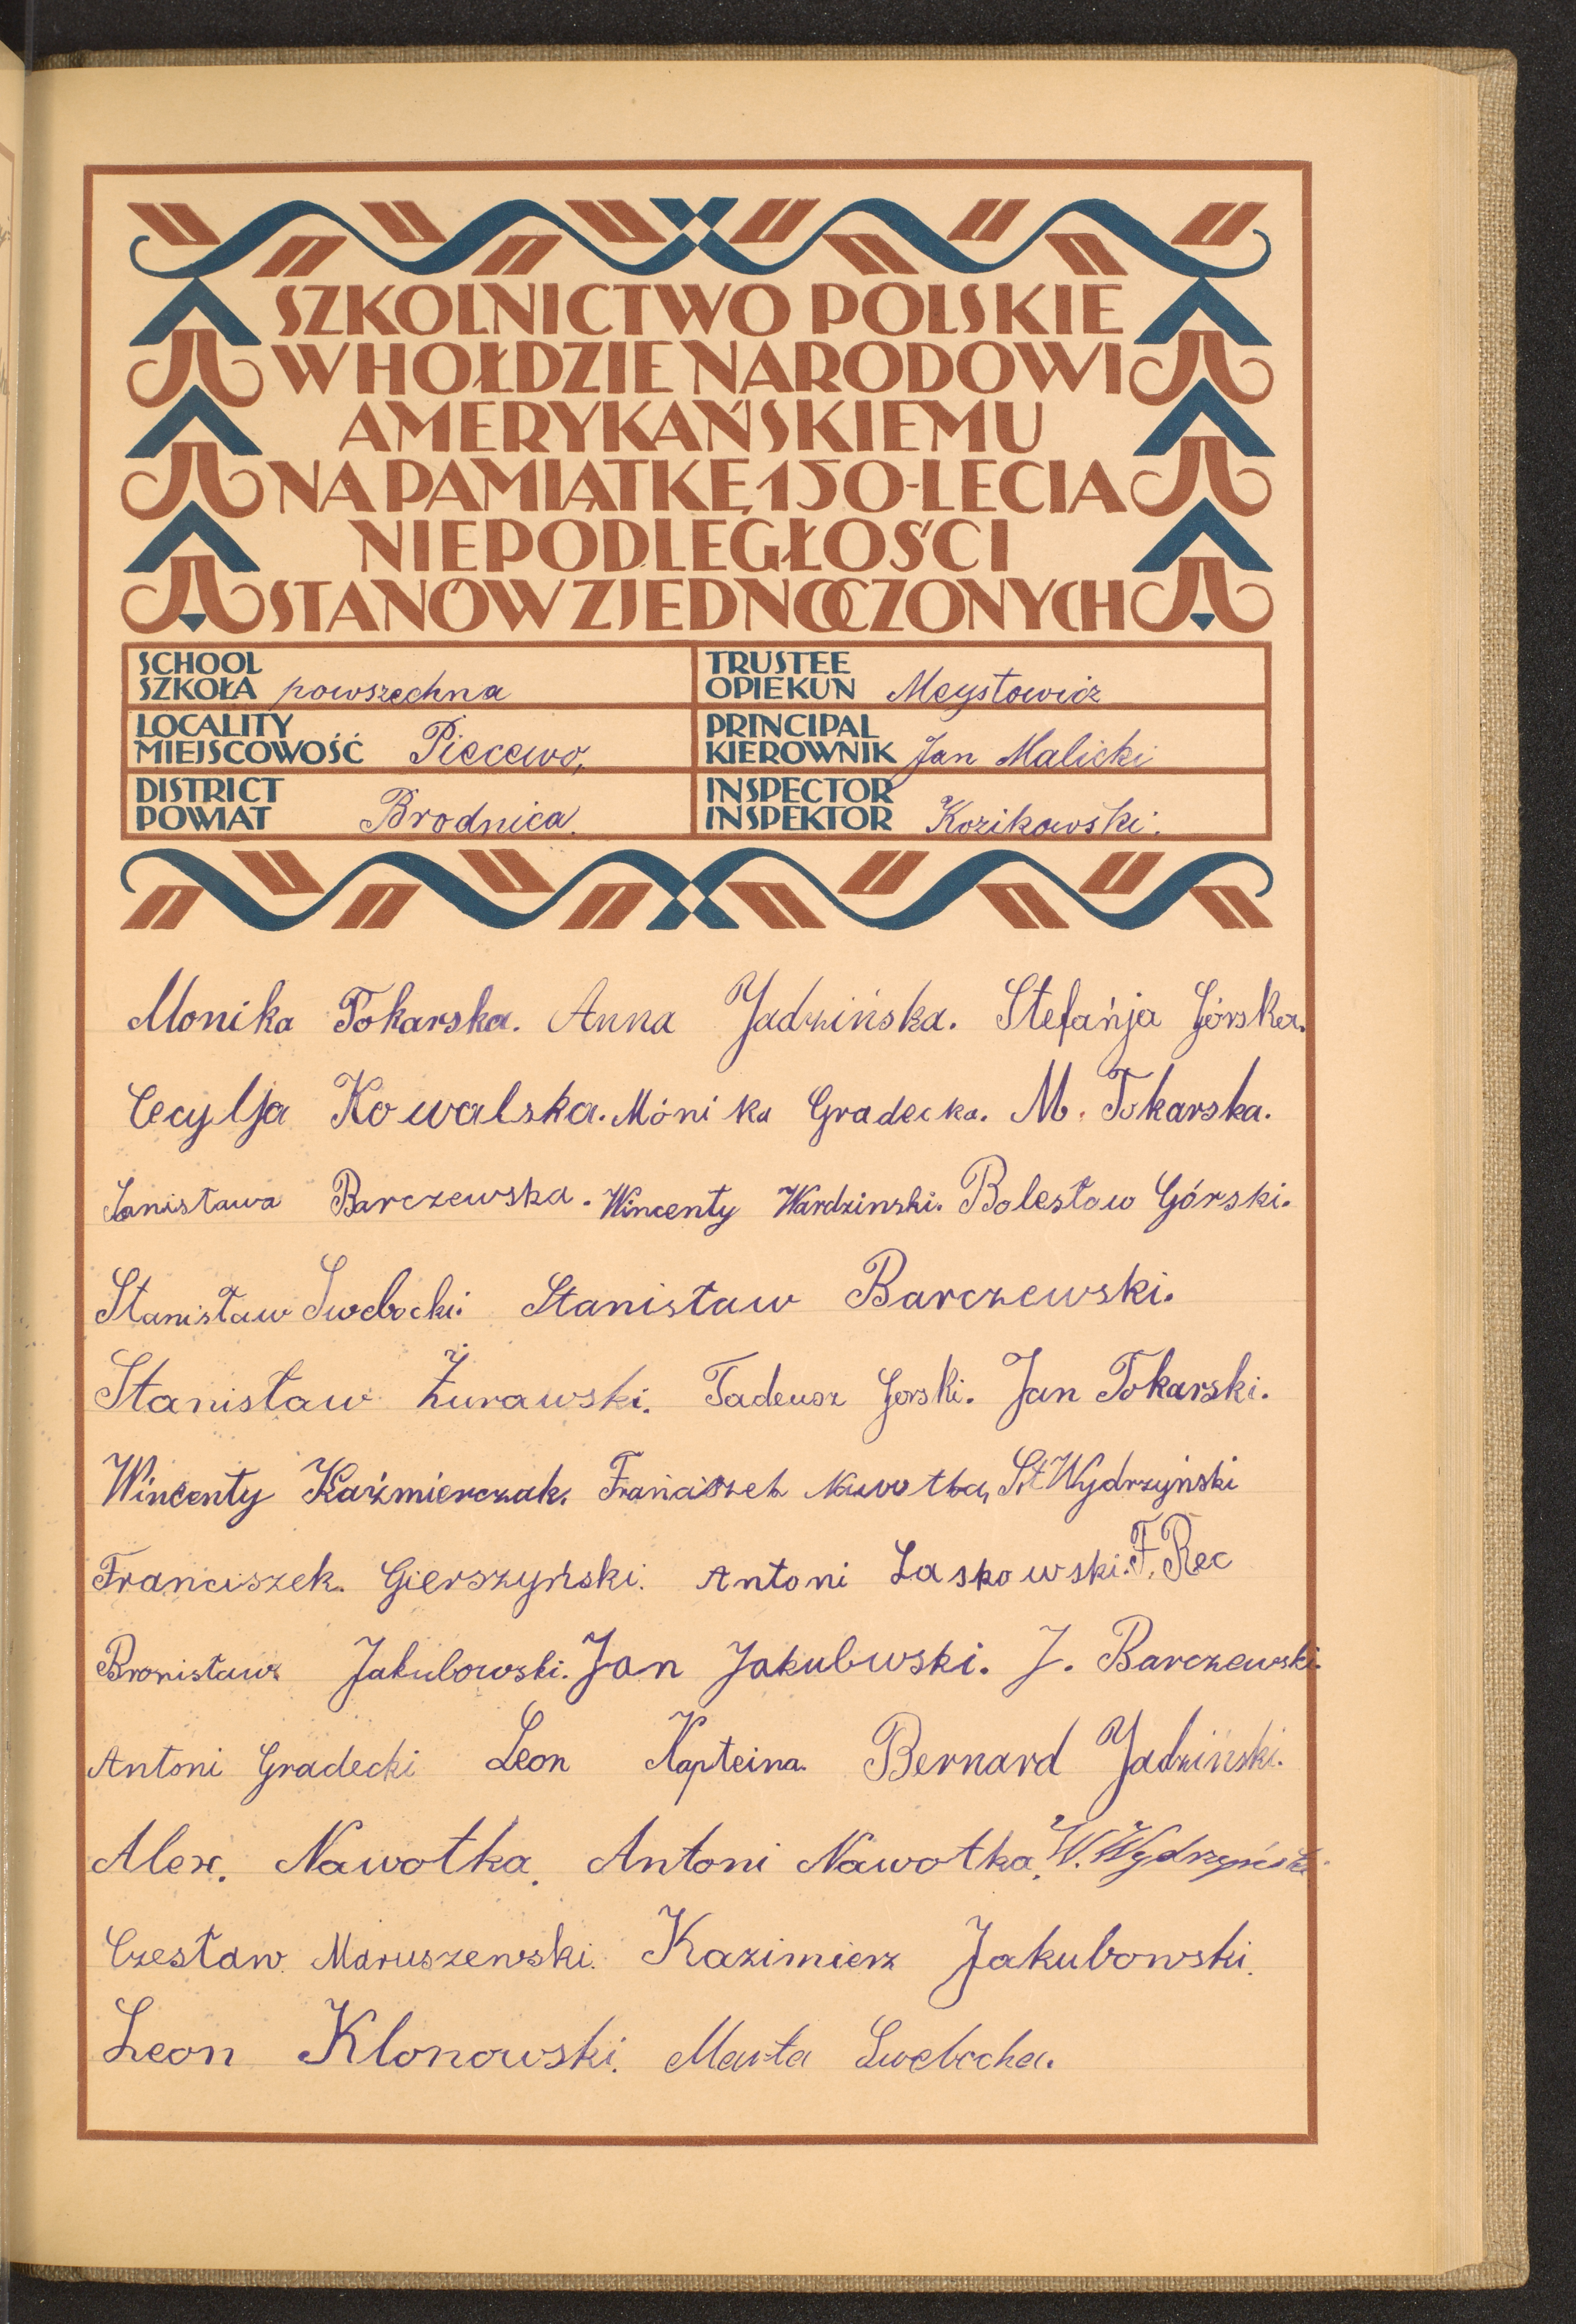 SZKOLNICTWO POLSKIE
W HOŁDZIE NARODOWI
AMERYKAŃSKIEMU
NA PAMIĄTKĘ 150-LECIA
NIEPODLEGŁOŚCI
STANÓW ZJEDNOCZONYCH
SCHOOL
SZKOŁA powszechna
TRUSTEE
OPIEKUN Meystowicz
LOCALITY
MIEJSCOWOŚĆ Piecewo,
PRINCIPAL
KIEROWNIK Jan Malicki
DISTRICT
POWIAT Brodnica.
INSPECTOR
INSPEKTOR Kozikowski.
Monika Tokarska. Anna Jadzińska. Stefańja Górska.
Cecylja Kowalska. Mónika Gradecka. M. Tokarska.
Sanisława Barczewska. Wincenty Wardzinski. Bolesław Górski.
Stanisław Swebocki. Stanisław Barczewski.
Stanisław Żurawski. Tadeusz Gorski. Jan Tokarski.
Wincenty Kaźmierczak. Franciszek Nawotka, St. Wydrzyński
Franciszek. Gierszyński. Antoni Laskowski. F. Rec
Bronisław Jakubowski. Jan Jakubwski. J. Barczewski.
Antoni Gradecki Leon Kapteina. Bernard Jadziński.
Alex. Nawotka. Antoni Nawotka. W. Wydrzyński
Czesław Maruszewski. Kazimierz Jakubowski.
Leon Klonowski. Marta Swebocka.